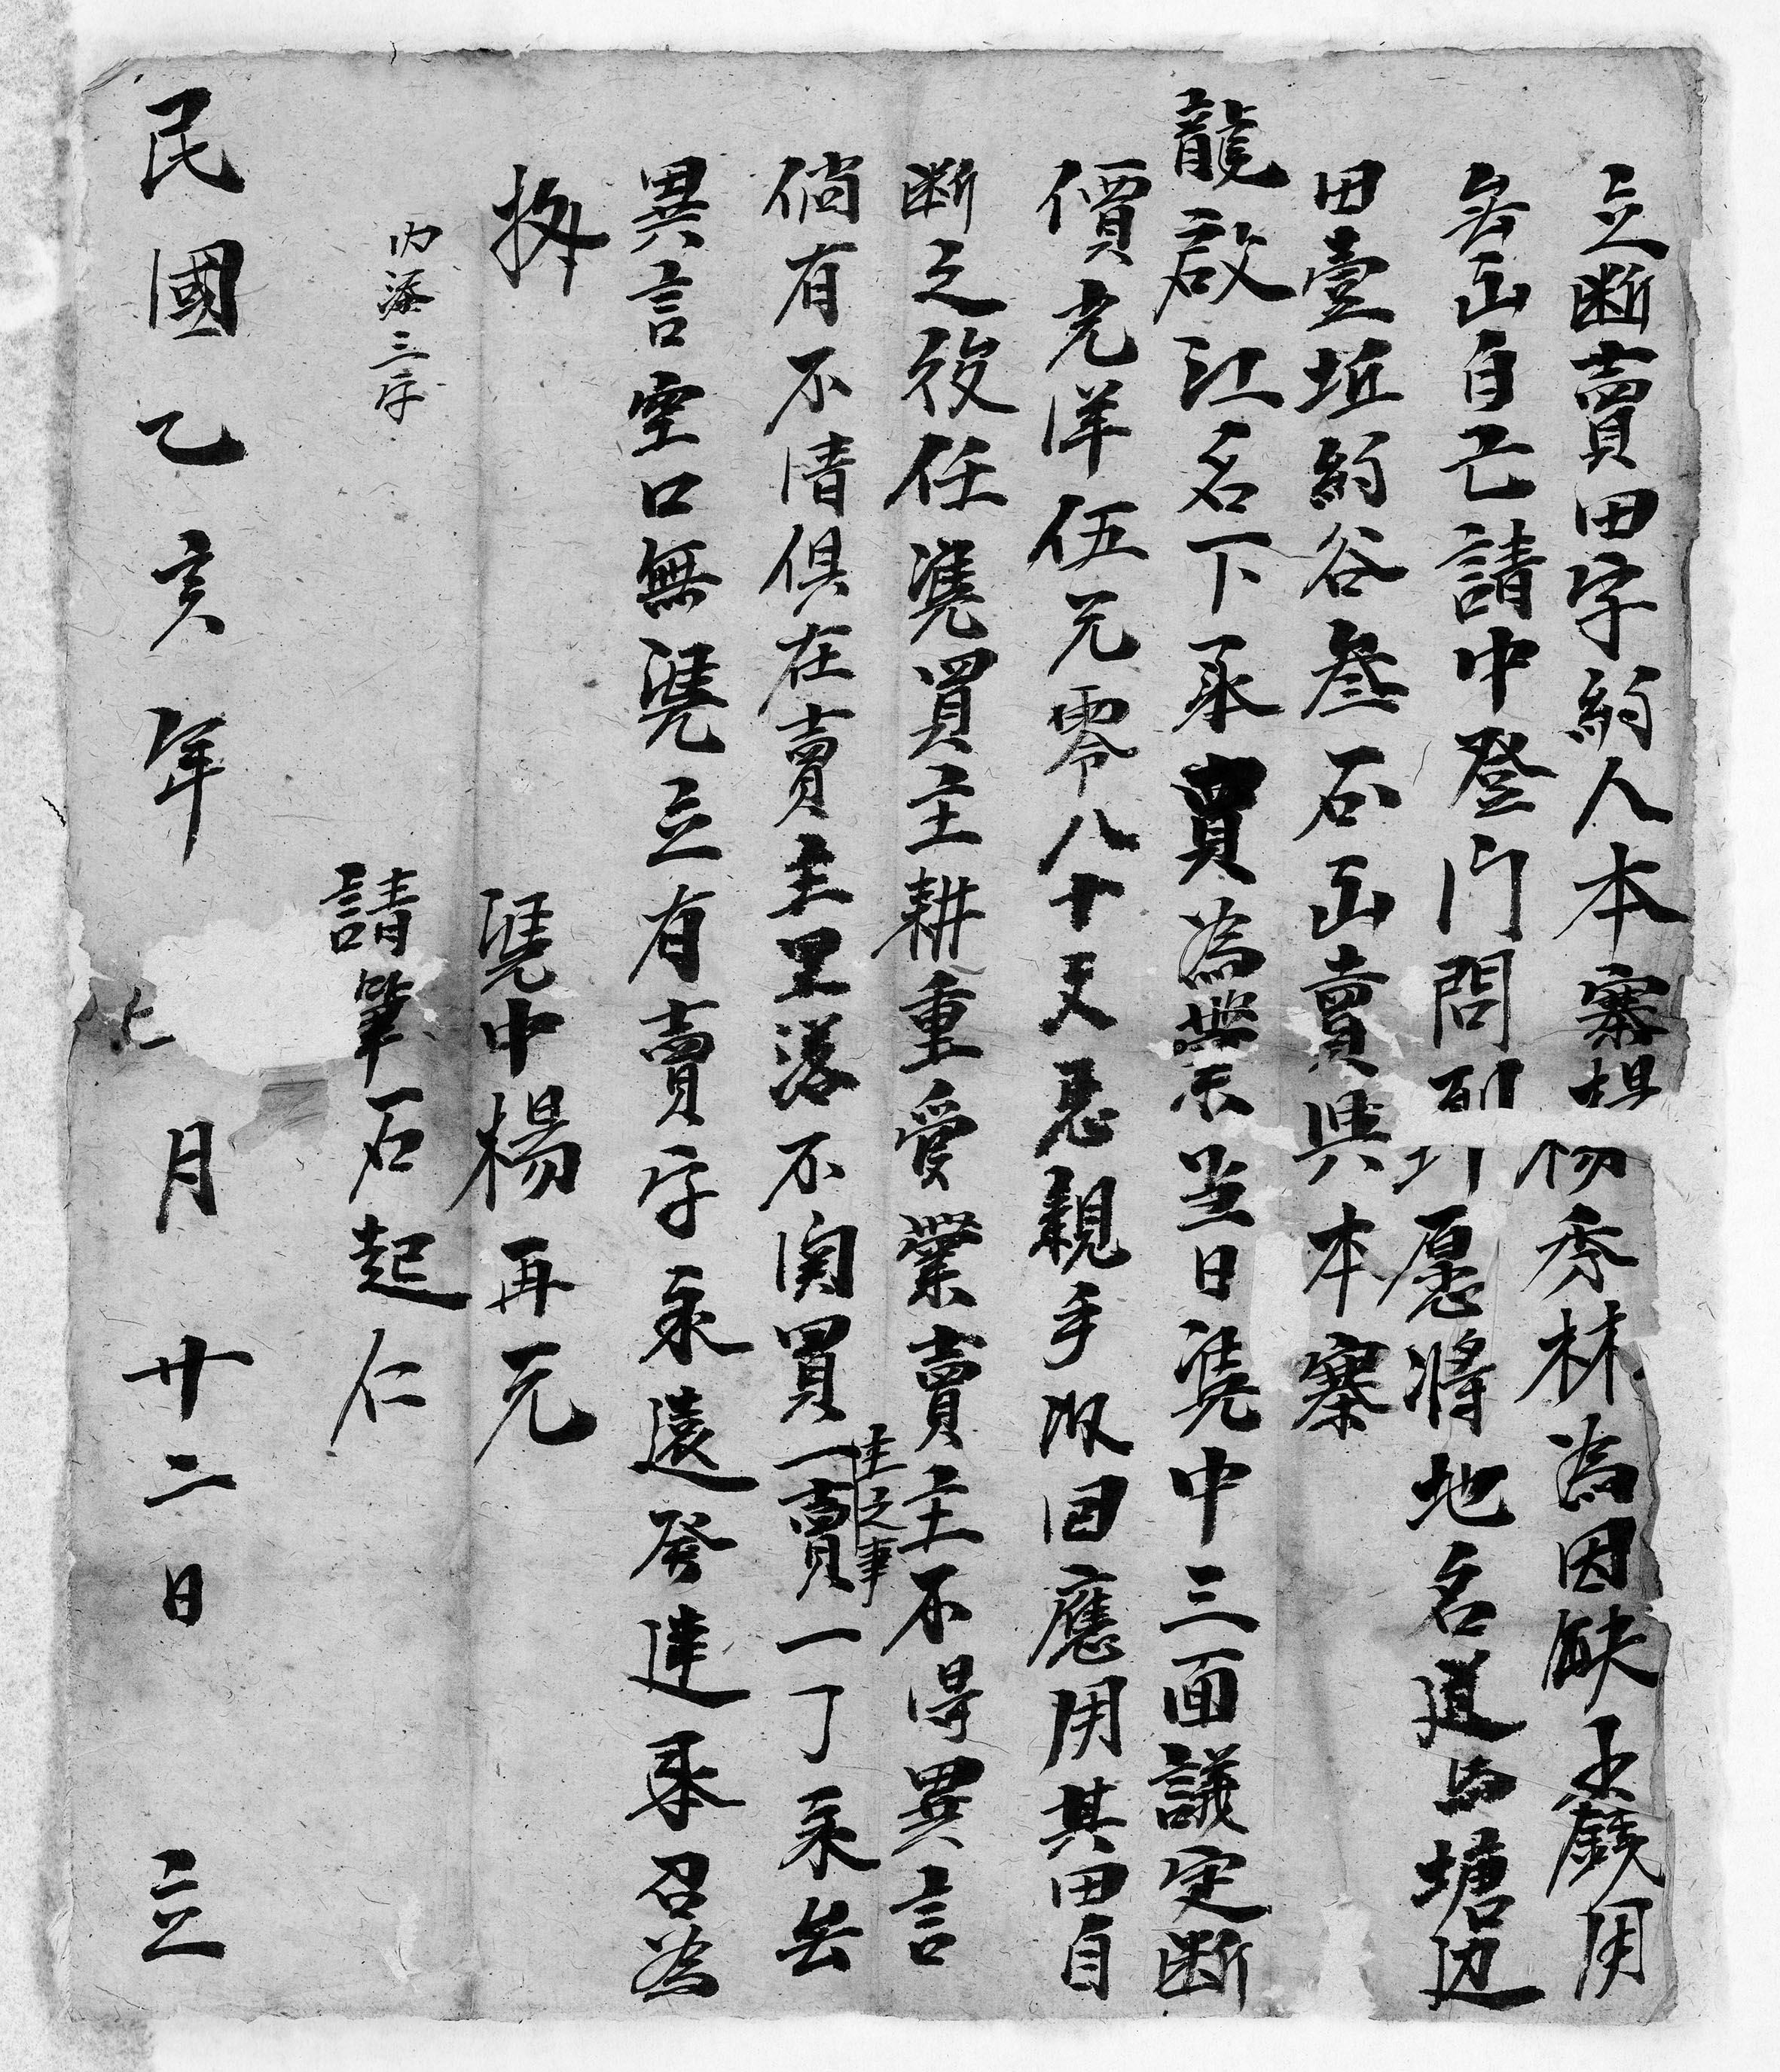 立断賣田字約人本寨楊秀林為因缺少錢用
無出自己請中登門問到愿將地名道公塘边
田壹坵約谷叁石出賣與本寨
龍啟江名下承買為業当日凴中三面議定断
價光洋伍元零八十文息親手収回應用其田自
断之後任凴買主耕重受業賣主不得異言
倘有不清俱在賣主里落不関買主之事一賣一了永無
異言空口無凴立有賣字永遠發達承召為
拠
凴中楊再元
内添三字
請筆石起仁
民國乙亥年 七月廿二日 立